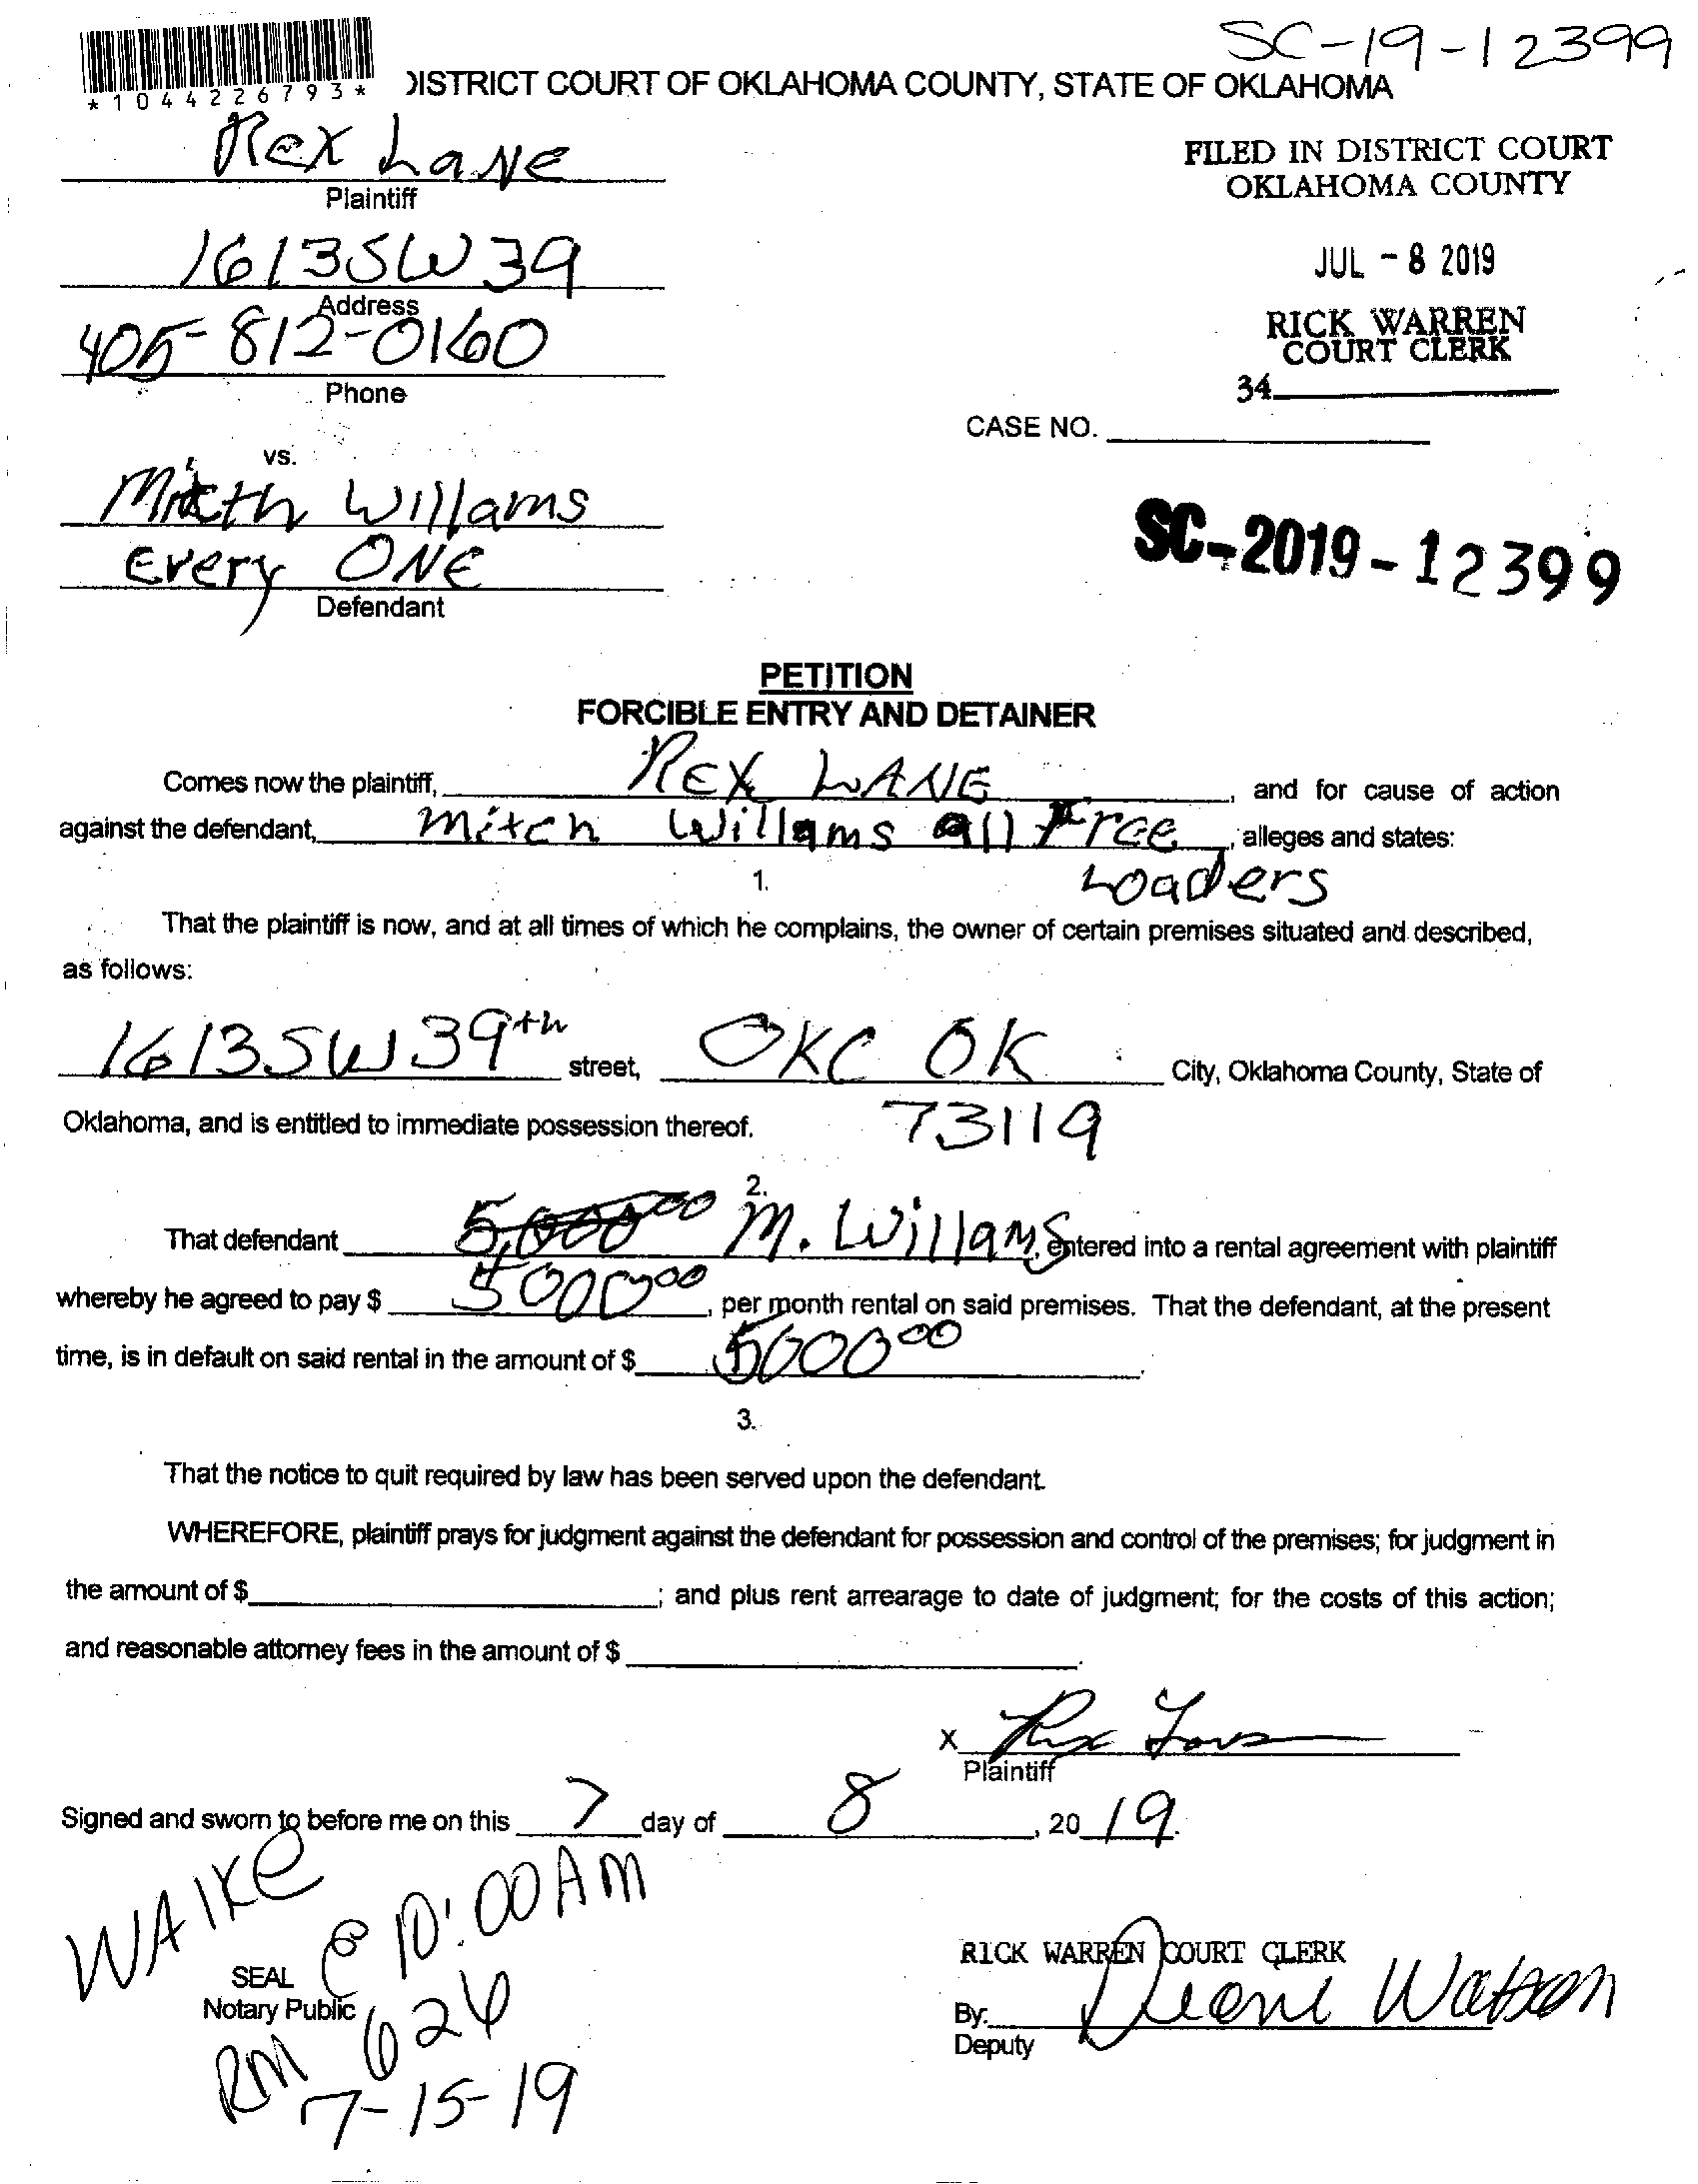 SC-19-12399
*1044226793*
DISTRICT COURT OF OKLAHOMA COUNTY, STATE OF OKLAHOMA
Rex Lane
Plaintiff
FILED IN DISTRICT COURT
OKLAHOMA COUNTY
1613 SW 39
Address
JUL - 8 2019
405-812-0160
Phone
RICK WARREN
COURT CLERK
34
CASE NO.
vs.
Mitcth Willams
Every ONE
Defendant
SC-2019-12399
PETITION
FORCIBLE ENTRY AND DETAINER
Comes now the plaintiff, REX LANE, and for cause of action
against the defendant, Mitch Willams All Free, alleges and states:
Loaders
1.
That the plaintiff is now, and at all times of which he complains, the owner of certain premises situated and described,
as follows:
1613 SW 39th street, OKC OK City, Oklahoma County, State of
Oklahoma, and is entitled to immediate possession thereof. 73119
2.
That defendant 5,000 00 M. Willams, entered into a rental agreement with plaintiff
whereby he agreed to pay $ 5000 00, per month rental on said premises. That the defendant, at the present
time, is in default on said rental in the amount of $ 5000 00.
3.
That the notice to quit required by law has been served upon the defendant.
WHEREFORE, plaintiff prays for judgment against the defendant for possession and control of the premises; for judgment in
the amount of $; and plus rent arrearage to date of judgment; for the costs of this action;
and reasonable attorney fees in the amount of $.
X Rex Lane
Plaintiff
Signed and sworn to before me on this 7 day of 8, 2019.
WAIKE
@ 10:00 AM
SEAL
Notary Public
RM 626
7-15-19
RICK WARREN COURT CLERK
By: Deone Watson
Deputy